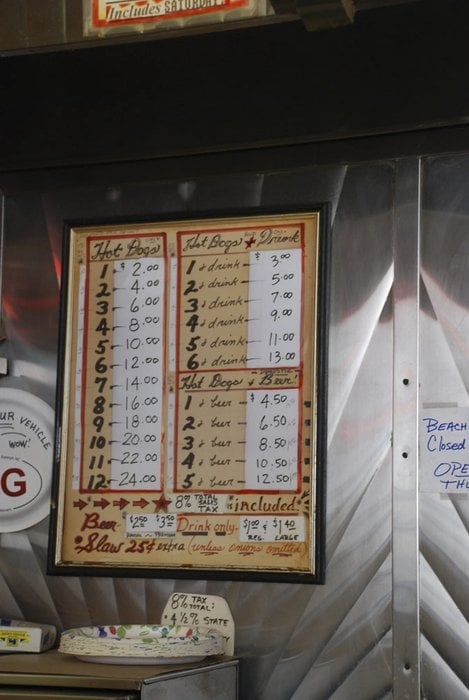 Includes SATURDAY
Hot Dogs
1 - $ 2.00
2 - 4.00
3 - 6.00
4 - 8.00
5 - 10.00
6 - 12.00
7 - 14.00
8 - 16.00
9 - 18.00
10 - 20.00
11 - 22.00
12 - 24.00
Hot Dogs ★ Drink
1 & drink - $ 3.00
2 & drink - 5.00
3 & drink - 7.00
4 & drink - 9.00
5 & drink - 11.00
6 & drink - 13.00
Hot Dogs & Beer!
1 & beer - $ 4.50
2 & beer - 6.50
3 & beer - 8.50
4 & beer - 10.50
5 & beer - 12.50
8% TOTAL SALES TAX is included!
Beer $2.50 $3.50 Drink only - $1.00 REG. & $1.40 LARGE
• Slaw 25¢ extra (unless onions omitted)
UR VEHICLE
WOW!
G
BEACH
Closed
OPE
THU
8% TAX
TOTAL:
• 4 1/2 % STATE